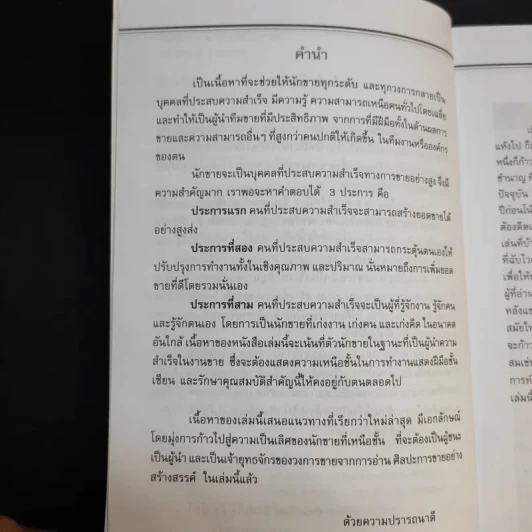 คำนำ
เป็นเนื้อหาที่จะช่วยให้นักขายทุกระดับ และทุกวงการกลายเป็น
บุคคลที่ประสบความสำเร็จ มีความรู้ ความสามารถเหนือคนทั่วไปโดยเฉลี่ย
และทำให้เป็นผู้นำทีมขายที่มีประสิทธิภาพ จากการที่มีฝีมือทั้งในด้านผลการ
ขายและความสามารถอื่นๆ ที่สูงกว่าคนปกติให้เกิดขึ้น ในทีมงานหรือองค์กร
ของตน
นักขายจะเป็นบุคคลที่ประสบความสำเร็จทางการขายอย่างสูง จึงมี
ความสำคัญมาก เราพอจะหาคำตอบได้ 3 ประการ คือ
ประการแรก คนที่ประสบความสำเร็จจะสามารถสร้างยอดขายได้
อย่างสูงส่ง
ประการที่สอง คนที่ประสบความสำเร็จสามารถกระตุ้นตนเองให้
ปรับปรุงการทำงานทั้งในเชิงคุณภาพ และปริมาณ นั่นหมายถึงการเพิ่มยอด
ขายที่ดีโดยรวมนั่นเอง
ประการที่สาม คนที่ประสบความสำเร็จจะเป็นผู้ที่รู้จักงาน รู้จักคน
และรู้จักตนเอง โดยการเป็นนักขายที่เก่งงาน เก่งคน และเก่งคิด ในอนาคต
อันใกล้ เนื้อหาของหนังสือเล่มนี้จะเน้นที่ตัวนักขายในฐานะที่เป็นผู้นำความ
สำเร็จในงานขาย ซึ่งจะต้องแสดงความเหนือชั้นในการทำงานแสดงฝีมือชั้น
เซียน และรักษาคุณสมบัติสำคัญนี้ให้คงอยู่กับตนตลอดไป
เนื้อหาของเล่มนี้เสนอแนวทางที่เรียกว่าใหม่ล่าสุด มีเอกลักษณ์
โดยมุ่งการก้าวไปสู่ความเป็นเลิศของนักขายที่เหนือชั้น ที่จะต้องเป็นผู้ชนะ
เป็นผู้นำ และเป็นเจ้ายุทธจักรของวงการขายจากการอ่าน ศิลปะการขายอย่าง
สร้างสรรค์ ในเล่มนี้แล้ว
ด้วยความปรารถนาดี
แห้งไป
หนึ่งก็ก้าว
ชำนาญ
ปัจจุบัน
ปีก่อนโน้
ต้องคิดแ
เล่นที่บ้า
ที่ฉับไว
เพื่อให้
ผู้ที่อ่าน
หลังแข
สมัยให
จะก้าว
สมเช่น
การทำ
เล่มนี้